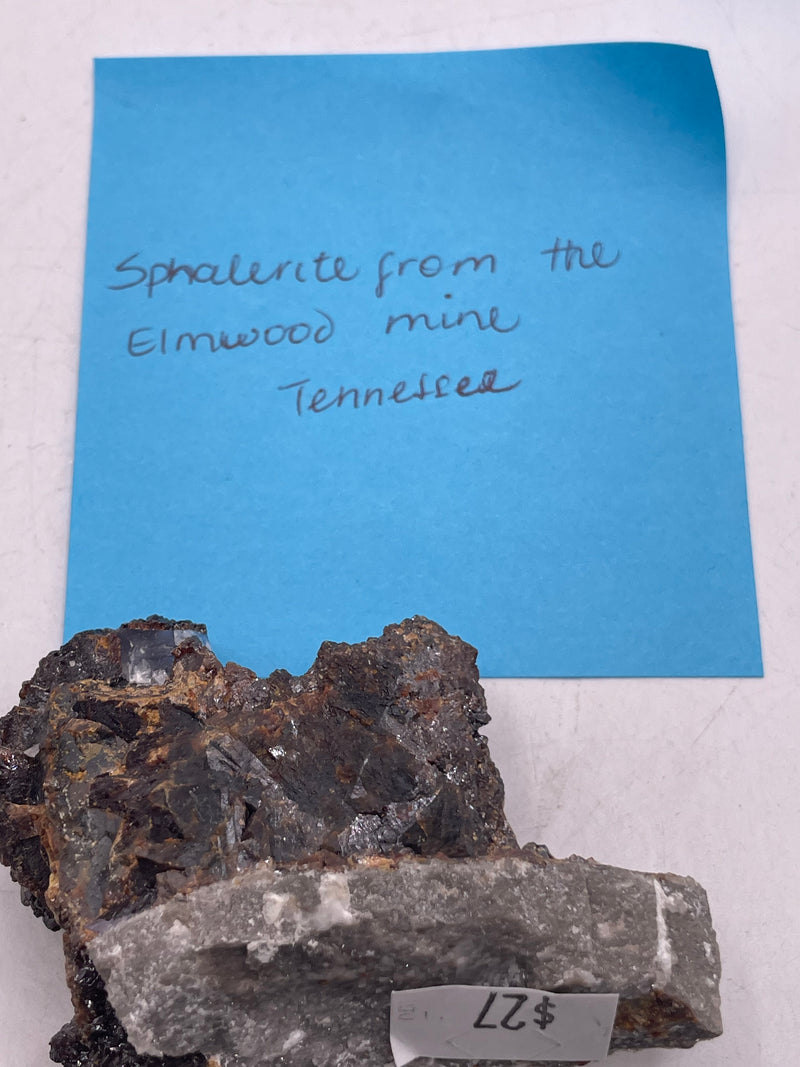 Sphalerite from the
Elmwood mine
Tennessee
$27